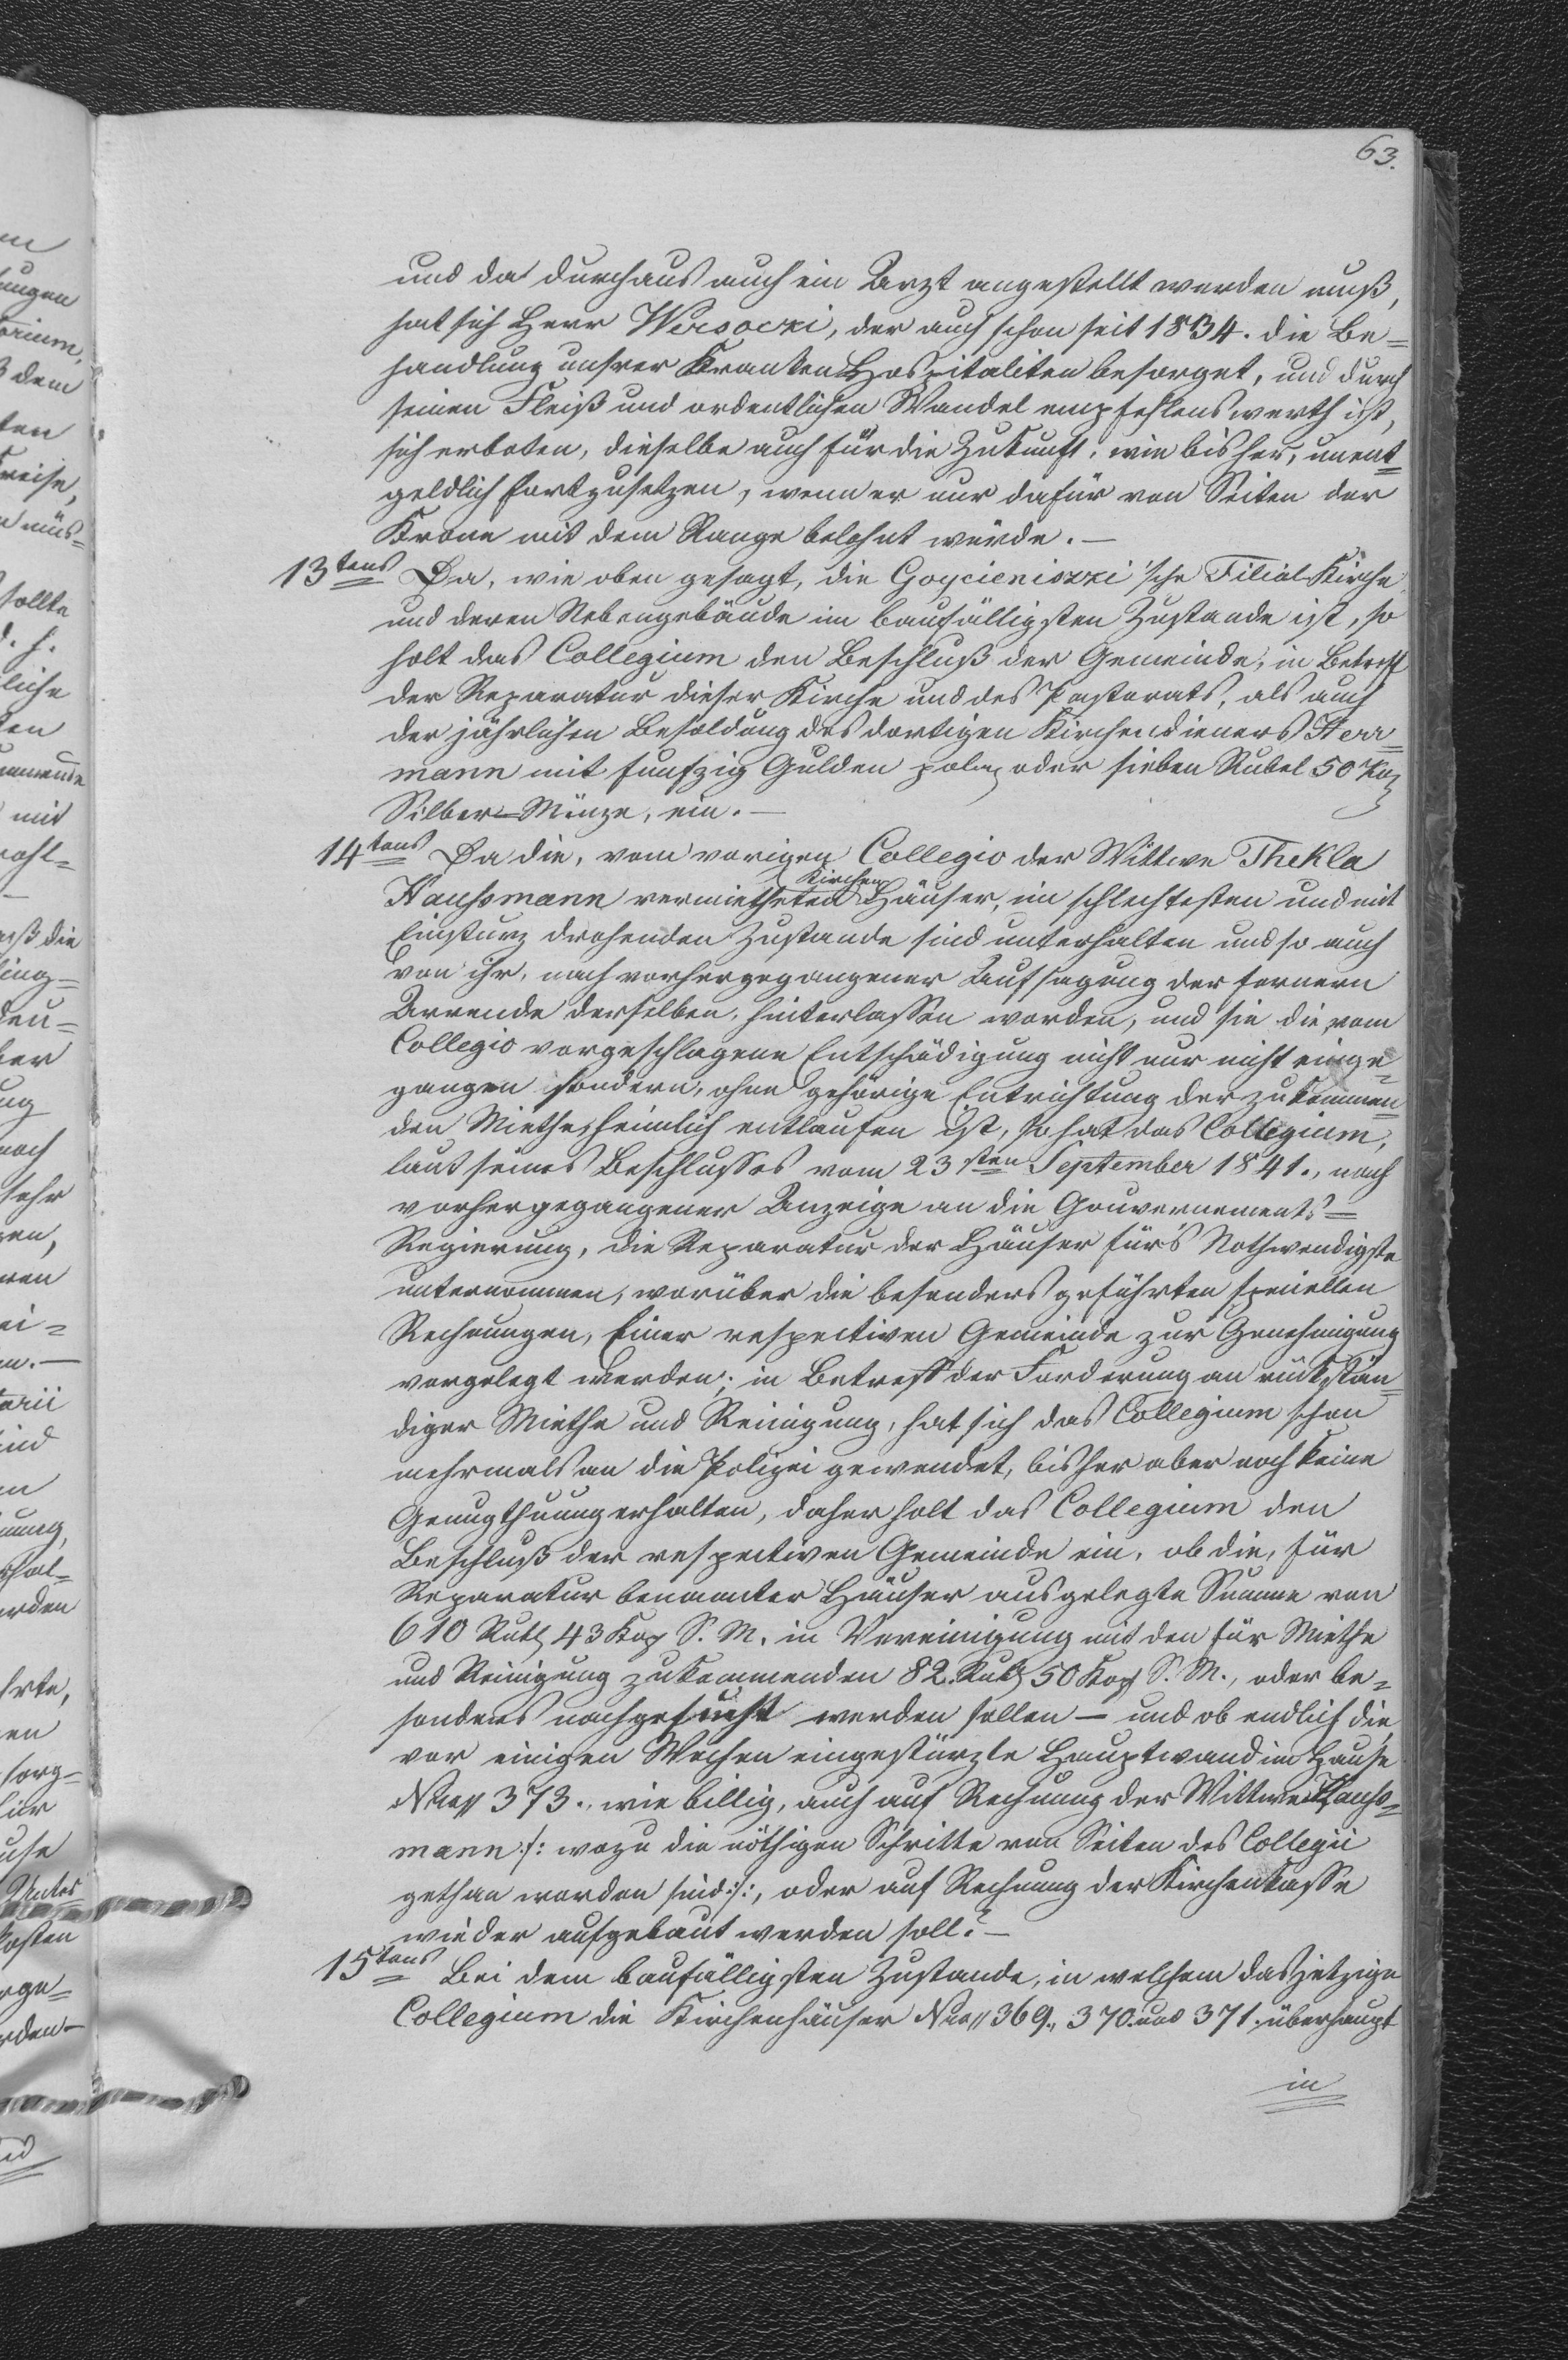 63.
und da durchaus auch ein Arzt angestellt werden muß,
hat sich Herr Wersocki, der auch schon seit 1834. die Be-
handlung unsrer Kranken Hospitaliten besorget, und durch
seinen Fleiß und ordentlichen Wandel empfehlenswerth ist,
sich erboten, dieselbe auch für die Zukunft, wie bisher, unent-
geldlich fortzusetzen, wenn er nur dafür von Seiten der
Krone mit dem Range belohnt würde. —
13tens Da, wie oben gesagt, die Goycieniszki'sche Filial-Kirche
und deren Nebengebäude im baufälligsten Zustande ist, so
holt das Collegium den Beschluß der Gemeinde, in Betreff
der Reparatur dieser Kirche und des Pastorats, als auch
der jährlichen Besoldung des dortigen Kirchendieners Herr-
mann mit funfzig Gulden poln oder sieben Rubel 50 Kop
Silber-Münze, ein. —
14tens Da die, vom vorigen Collegio der Wittwe Thekla
Haussmann vermietheten Kirchen Häuser, im schlechtesten und mit
Einsturz drohenden Zustande sind unterhalten und so auch
von ihr, nach vorhergegangener Aufsagung der fernern
Arrende derselben, hinterlassen worden, und sie die vom
Collegio vorgeschlagene Entschädigung nicht nur nicht einge-
gangen sondern, ohne gehörige Entrichtung der zukommen-
den Miethe, heimlich entlaufen ist, so hat das Collegium,
laut seines Beschlusses vom 23sten September 1841., nach
vorhergegangener Anzeige an die Gouvernements-
Regierung, die Reparatur der Häuser für's Nothwendigste
unternommen, worüber die besonders geführten speciellen
Rechnungen, Einer respectiven Gemeinde zur Genehmigung
vorgelegt werden; in Betreff der Forderung an rückstän-
diger Miethe und Reinigung, hat sich das Collegium schon
mehrmals an die Polizei gewendet, bisher aber noch keine
Genugthuung erhalten, daher holt das Collegium den
Beschluß der respectiven Gemeinde ein, ob die, für
Reparatur benannter Häuser ausgelegte Summe von
610 Rubl 43 Kop S. M. in Vereinigung mit den für Miethe
und Reinigung zukommenden 82. Rubl 50 Kop S. M., oder be-
sonders nachgesucht werden sollen — und ob endlich die
vor einigen Wochen eingestürzte Hauptwand im Hause
Nro 373., wie billig, auch auf Rechnung der Wittwe Hauss-
mann /: wozu die nöthigen Schritte von Seiten des Collegii
gethan worden sind :/, oder auf Rechnung der Kirchenkasse
wieder aufgebaut werden soll? —
15tens Bei dem baufälligsten Zustande, in welchem das jetzige
Collegium die Kirchenhäuser Nro 369., 370. und 371. überhaupt
in